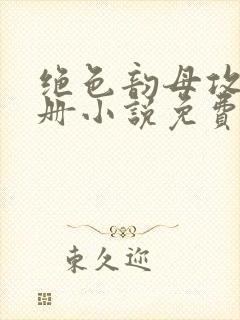 绝色韵母攻
册小说免费
東久迩